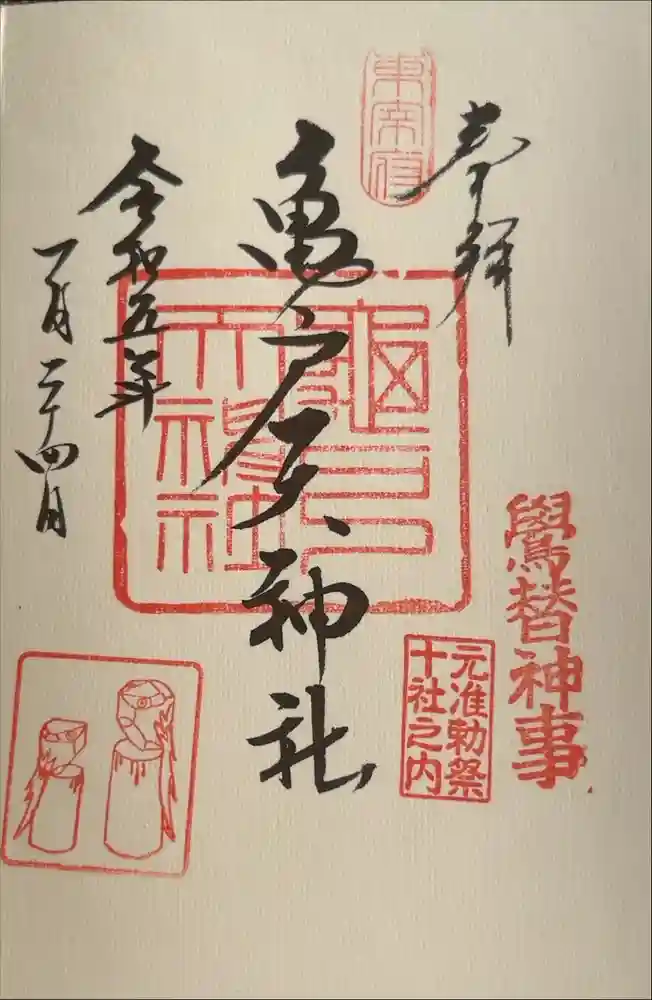 奉拝
鷽替神事
東宰府
元准勅祭
十社之内
亀戸天神社
龜戸
天神社
令和五年
一月二十四日